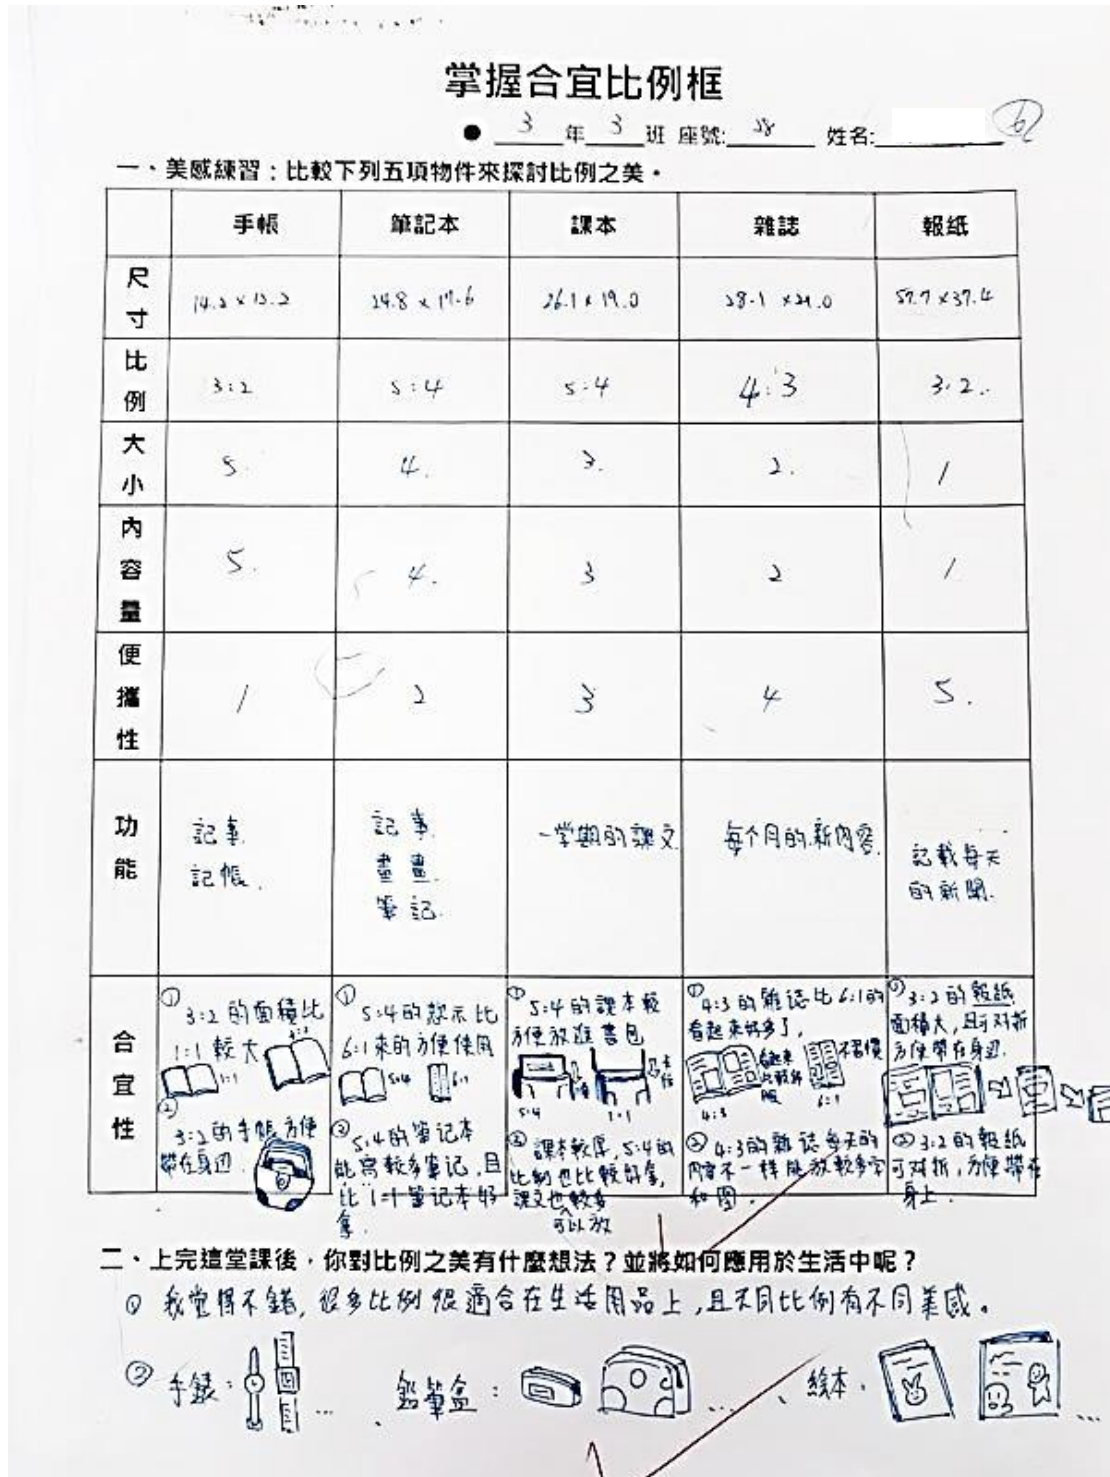 掌握合宜比例框
● 3 年 3 班 座號: 38 姓名:
一、美感練習：比較下列五項物件來探討比例之美。
手帳 筆記本 課本 雜誌 報紙
尺寸 24.8 x 17.6 26.1 x 19.0 28.1 x 21.0 57.7 x 37.4
比例 3:2 5:4 5:4 4:3 3:2.
大小 5. 4. 3. 2. 1
內容量 5. 4. 3 2 1
便攜性 1 2 3 4 5.
功能
記事.
記帳.
記事.
畫畫.
筆記.
一学期的課文
每个月的新內容.
記載每天
的新聞.
合宜性
① 3:2的面積比
1:1較大
1:1
② 3:2的手帳方便
帶在身辺.
① 5:4的款示比
6:1來的方便使用
5:4 6:1
② 5:4的筆記本
能寫較多筆記,且
比1:1筆記本好
拿.
① 5:4的課本較
方便放進書包
5:4 1:1
② 課本較厚,5:4的
比例也比較好拿,
課文也較多
可以放
① 4:3的雜誌比6:1的
看起來好多了.
看起來
比較舒
服
不習慣
4:3 6:1
② 4:3的雜誌每天的
內容不一樣能放較多字
和圖.
① 3:2的報紙
面積大,且可对折
方便帶在身辺.
② 3:2的報紙
可对折,方便帶在
身上.
二、上完這堂課後，你對比例之美有什麼想法？並將如何應用於生活中呢？
① 我覚得不錯,很多比例很適合在生活用品上,且不同比例有不同美感。
② 手錶: ... 、 鉛筆盒: ... 、 繪本. ...